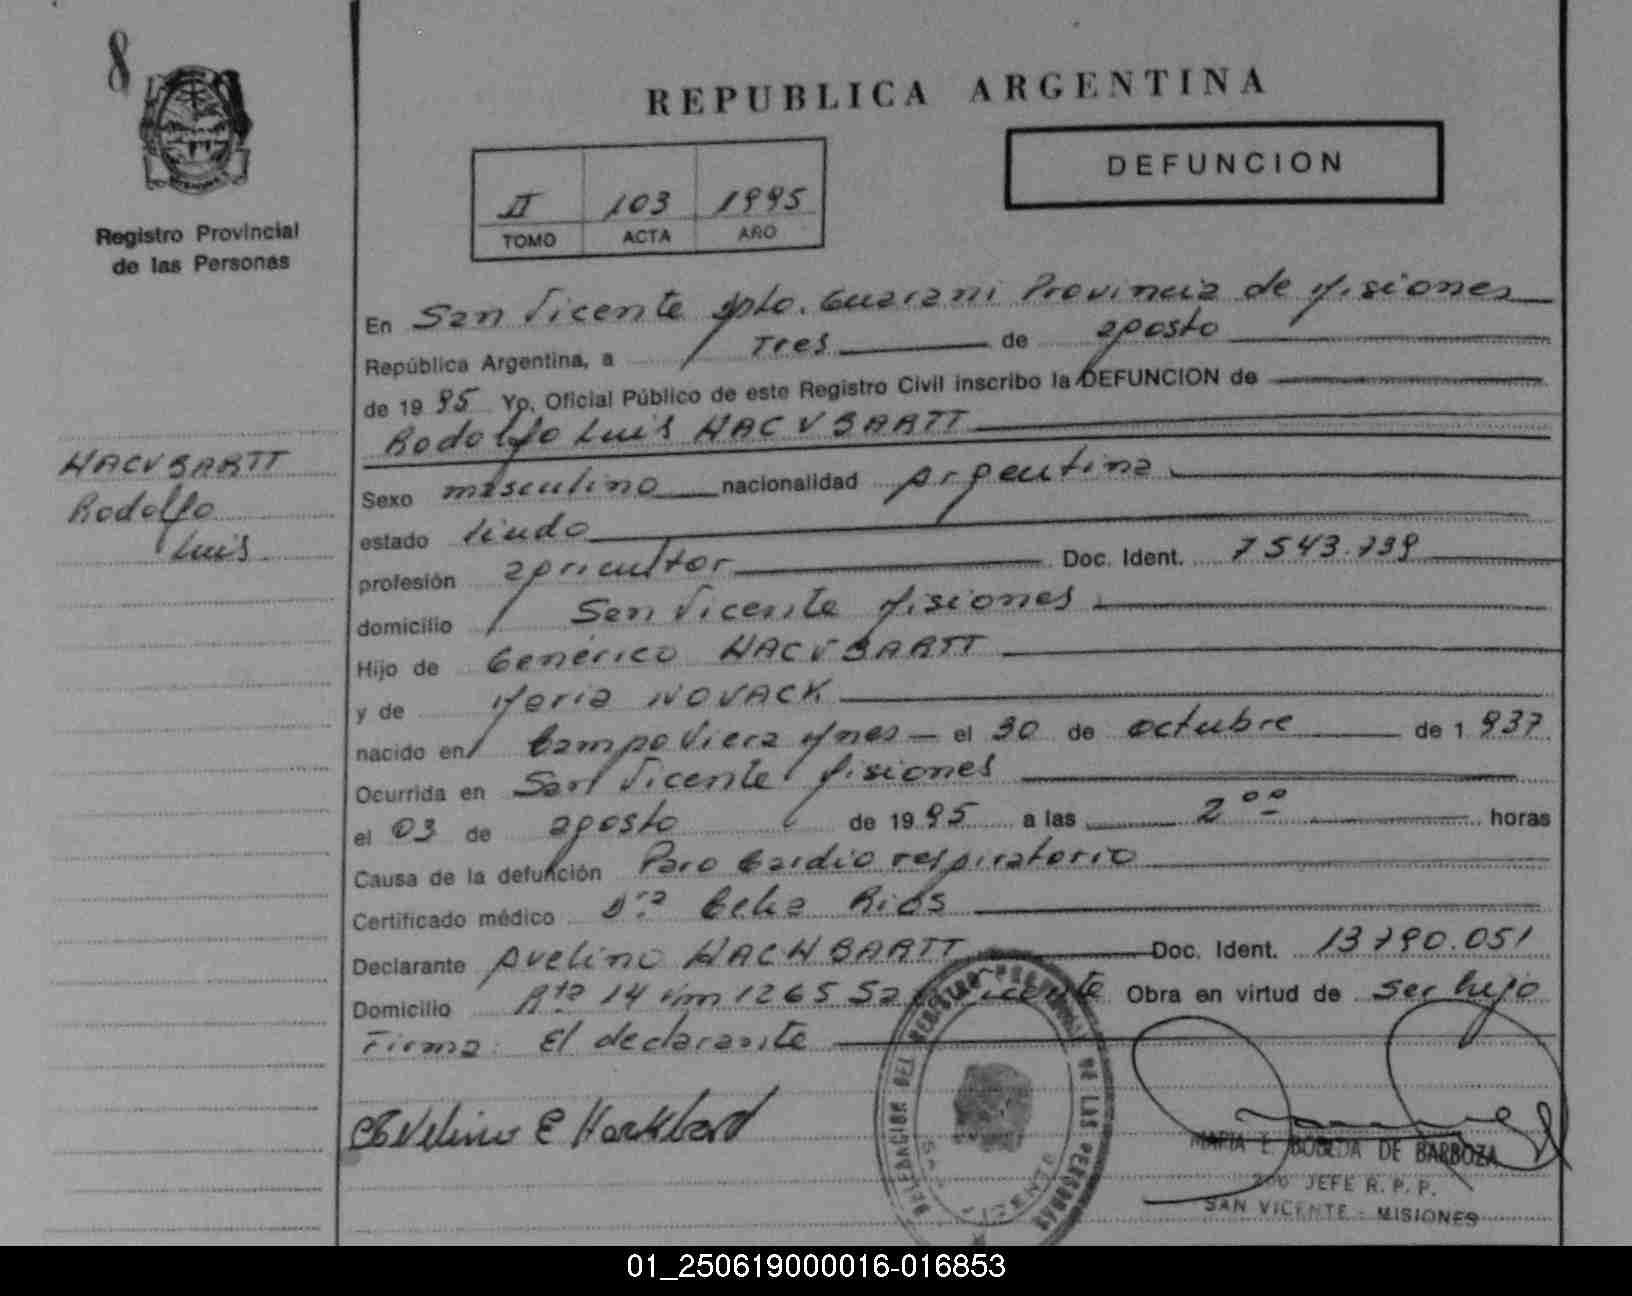 8
REPUBLICA ARGENTINA
DEFUNCION
II 103 1995
TOMO ACTA AÑO
Registro Provincial
de las Personas
HACVBARTT
Rodolfo
Luis
En San Vicente Dpto. Guarani Provincia de Misiones
República Argentina, a Tres de agosto
de 1995 Yo, Oficial Público de este Registro Civil inscribo la DEFUNCION de
Rodolfo Luis HACVBARTT
Sexo masculino nacionalidad Argentina
estado Viudo
profesión agricultor Doc. Ident. 7543.739
domicilio San Vicente Misiones
Hijo de Genérico HACVBARTT
y de Maria NOVACK
nacido en Campo Viera Mnes - el 30 de octubre de 1937
Ocurrida en San Vicente Misiones
el 03 de agosto de 1995 a las 2 00 horas
Causa de la defunción Paro Cardio respiratorio
Certificado médico Dra Celia Rios
Declarante Avelino HACHBARTT Doc. Ident. 13790.051
Domicilio Rta 14 Km 1265 San Vicente Obra en virtud de ser hijo
Firma: El declarante
DELEGACION DEL REGISTRO PROVINCIAL DE LAS PERSONAS
SAN VICENTE
MARIA E. BOBEDA DE BARBOZA
JEFE R.P.P.
SAN VICENTE - MISIONES
01_250619000016-016853